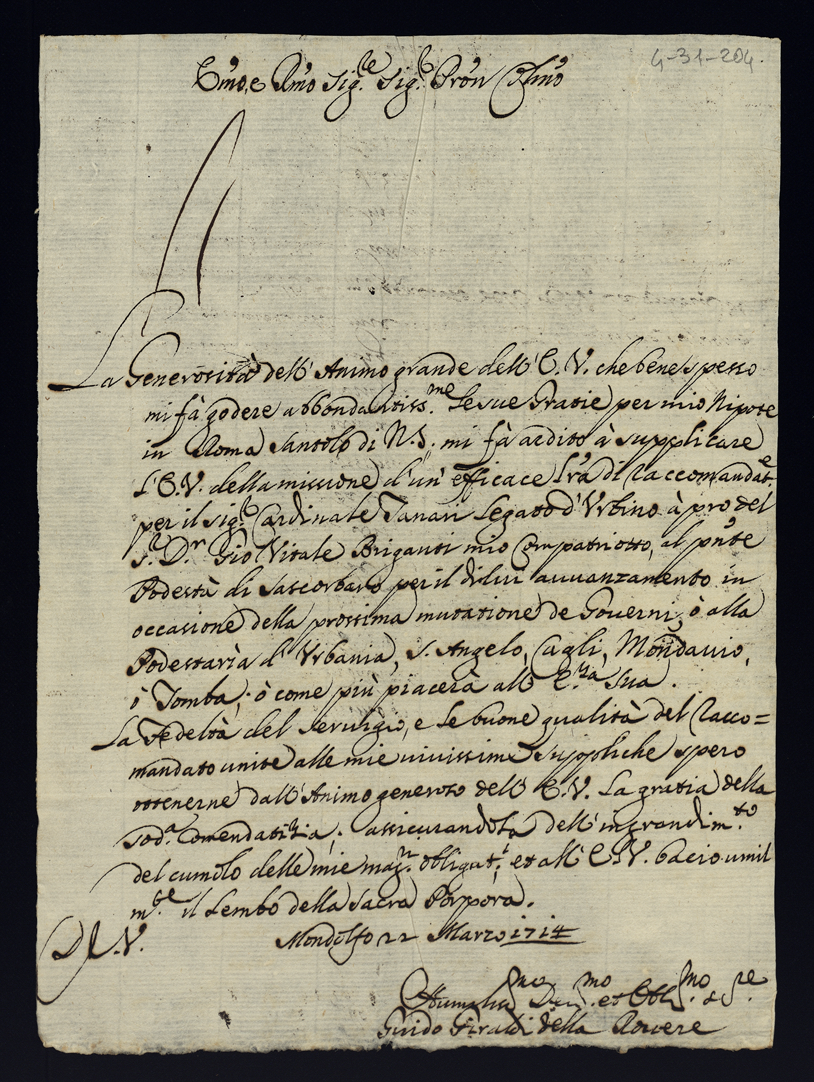 4-31-204.
Emo, e Rmo Sig.re Sig.r Pron Colmo
La Generosità dell' Animo grande dell' E.V. che bene spesso
mi fà godere abbondantiss.me le sue Gratie per mio Nipote
in Roma Santolo di N.S. mi fà ardito à supplicare
l'E.V. della missione d'un' efficace lra di raccomandat.e
per il Sig.r Cardinale Tanari Legato d'Urbino à pro del
S.r D.r Gio Vitale Briganti mio Compatriotto, al pnte
Podestà di Sascorbaro per il di lui avvanzamento in
occasione della prossima mutatione de Governi, ò alla
Podestarìa d'Urbania, S. Angelo, Cagli, Mondavio,
ò Tomba, ò come più piacerà all' E.za Sua.
La Fedeltà del servigio, e le buone qualità del racco=
mandato unite alle mie vivissime suppliche spero
ottenerne dall' Animo generoso dell' E.V. La gratia della
sod.a comendatitia, assicurandola dell' ingrandim.to
del cumolo delle mie mag.ri obligat.i et all' E.V. bacio umil
m.te il Lembo della Sacra Porpora.
D.E.V.
Mondolfo 22 Marzo 1714
Humiliss.mo Dev.mo et Obl.mo S.re
Guido Giraldi della Rovere